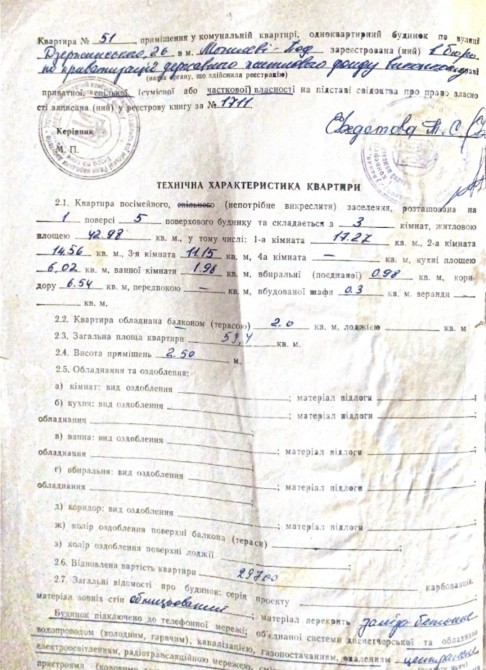 Квартира № 51, приміщення у комунальній квартирі, одноквартирний будинок по вулиці
Дзержинського, 26 в м. Могилеві-Под. зареєстрована (ний) в бюро
по приватизації державного житлового фонду виконкому
(назва органу, що здійснила реєстрацію)
приватної, спільної, (сумісної або часткової) власності на підставі свідоцтва про право власно
сті записана (ний) у реєстрову книгу за № 1711
Керівник
М. П.
Федотова Т. С.
ТЕХНІЧНА ХАРАКТЕРИСТИКА КВАРТИРИ
2.1. Квартира посімейного, спільного (непотрібне викреслити) заселення, розташована на
1 поверсі 5 поверхового будинку та складається з 3 кімнат, житловою
площею 42.98 кв. м., у тому числі: 1-а кімната 17.27 кв. м., 2-а кімната
14.56 кв. м., 3-я кімната 11.15 кв. м, 4а кімната — кв. м, кухні площею
6.02 кв. м, ванної кімнати 1.98 кв. м, вбиральні (поєднаної) 0.98 кв. м, кори
дору 6.54 кв. м, передпокою — кв. м, вбудованої шафи 0.3 кв. м, веранди —
кв. м.
2.2. Квартира обладнана балконом (терасою) 2.0 кв. м, лоджією — кв. м
2.3. Загальна площа квартири 59,4 кв. м.
2.4. Висота приміщень 2.50 м.
2.5. Обладнання та оздоблення:
а) кімнат: вид оздоблення ; матеріал підлоги ;
б) кухня: вид оздоблення ; матеріал підлоги ;
обладнання
в) ванна: вид оздоблення ; матеріал підлоги
обладнання
г) вбиральня: вид оздоблення ; матеріал підлоги
обладнання
д) коридор: вид оздоблення
ж) колір оздоблення поверхні балкона (тераси)
з) колір оздоблення поверхні лоджії
2.6. Відновлена вартість квартири 29700 карбованців.
2.7. Загальні відомості про будинок: серія проекту
матеріал зовніх стін облицьований ; матеріал перекрить залізо бетонне
Будинок підключено до телефонної мережі; об'єднаної системи диспетчерської та обладнано
водопроводом (володним, гарячим), каналізацією, газопостачанням, опаленням центральне
електроосвітленням, радіотрансляційною мережею,